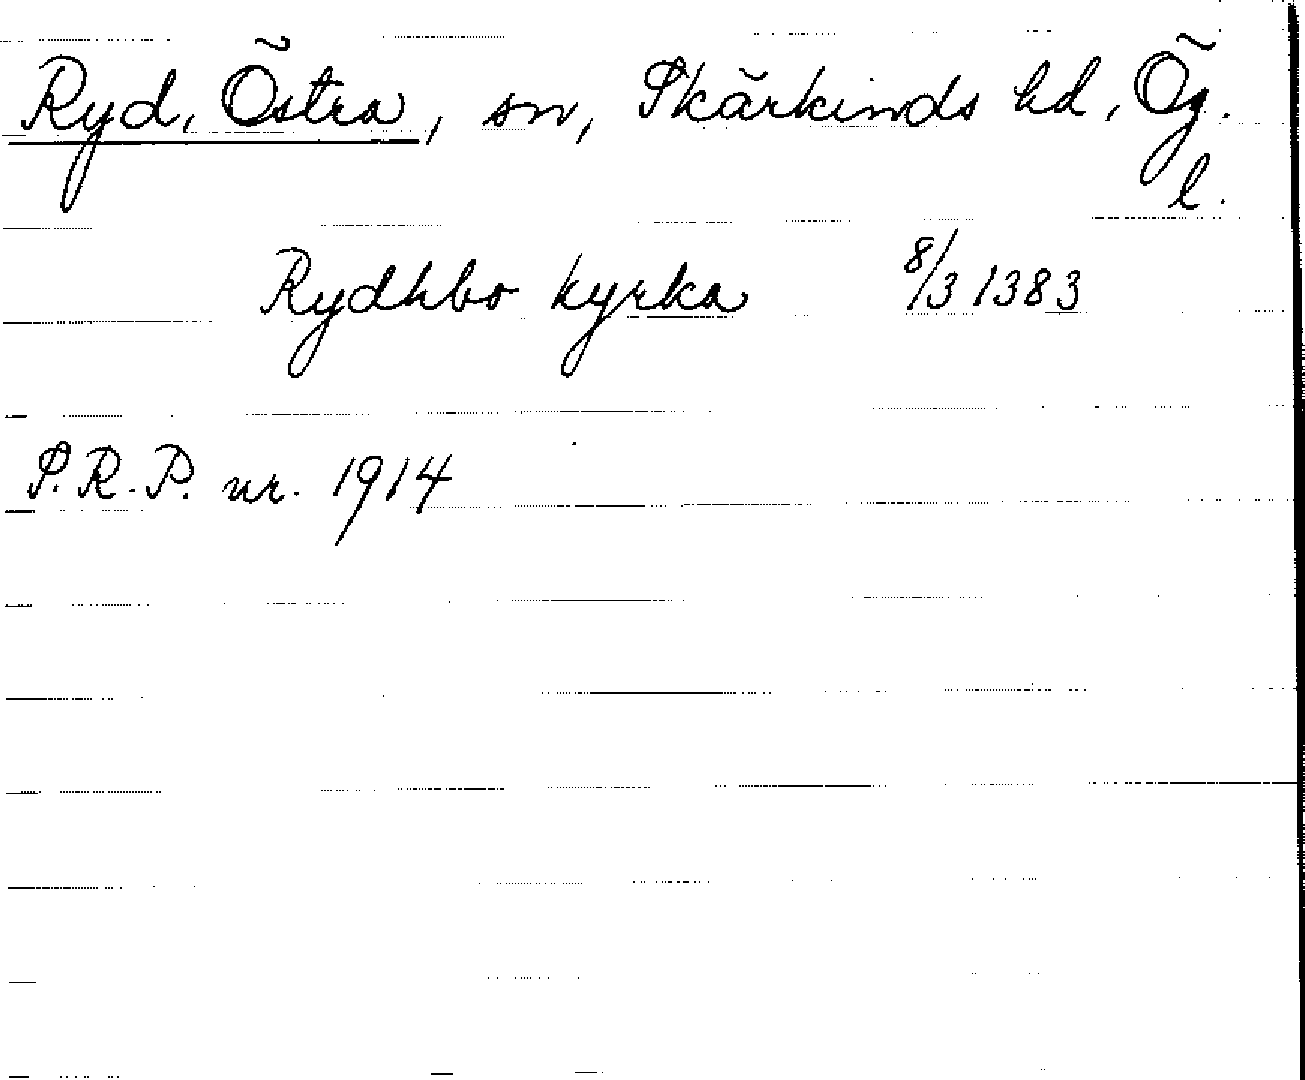 Ryd, Östra, sn, Skärkinds hd, Ög.
l.
Rydhbo kyrka 8/3 1383
S.R.P. nr. 1914